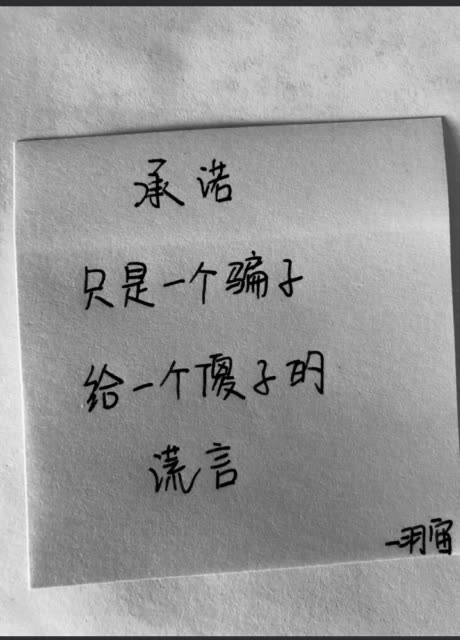 承诺
只是一个骗子
给一个傻子的
谎言